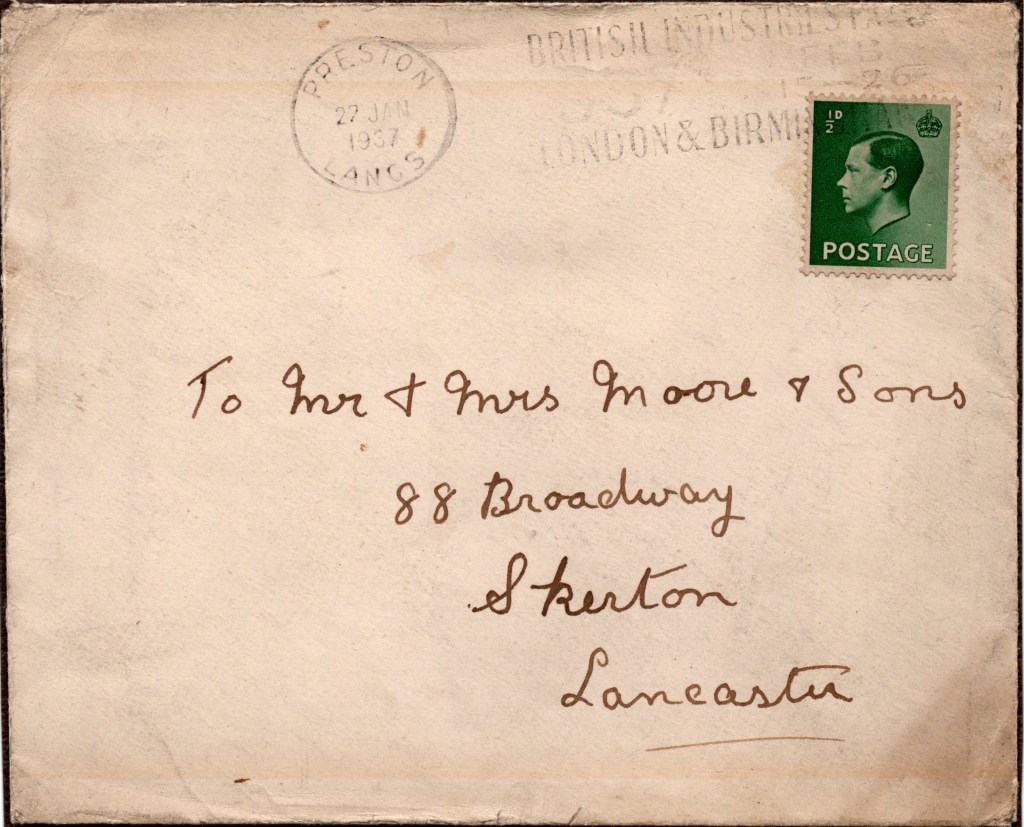 PRESTON
27 JAN
1937
LANCS
BRITISH INDUSTRIES FAIR
FEB
15 - 26
LONDON & BIRMINGHAM
½D
POSTAGE
To Mr & Mrs Moore & Sons
88 Broadway
Skerton
Lancaster